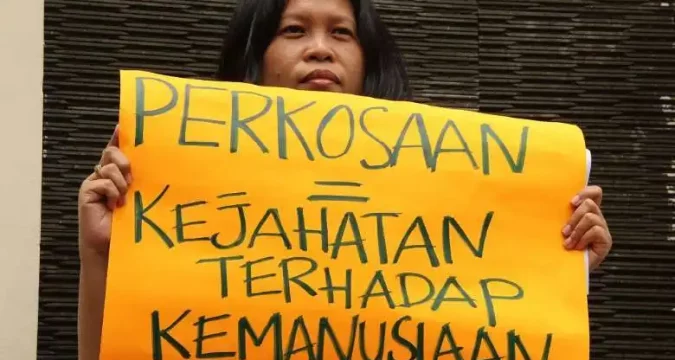 PERKOSAAN
=
KEJAHATAN
TERHADAP
KEMANUSIAAN